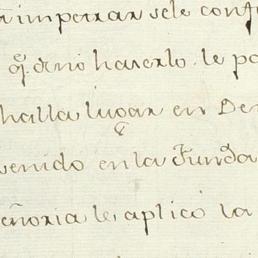 imperrar sele conf
q.e de no hacerlo le pa
halla lugar en De
venido en la Funda
eñoria le aplicó la